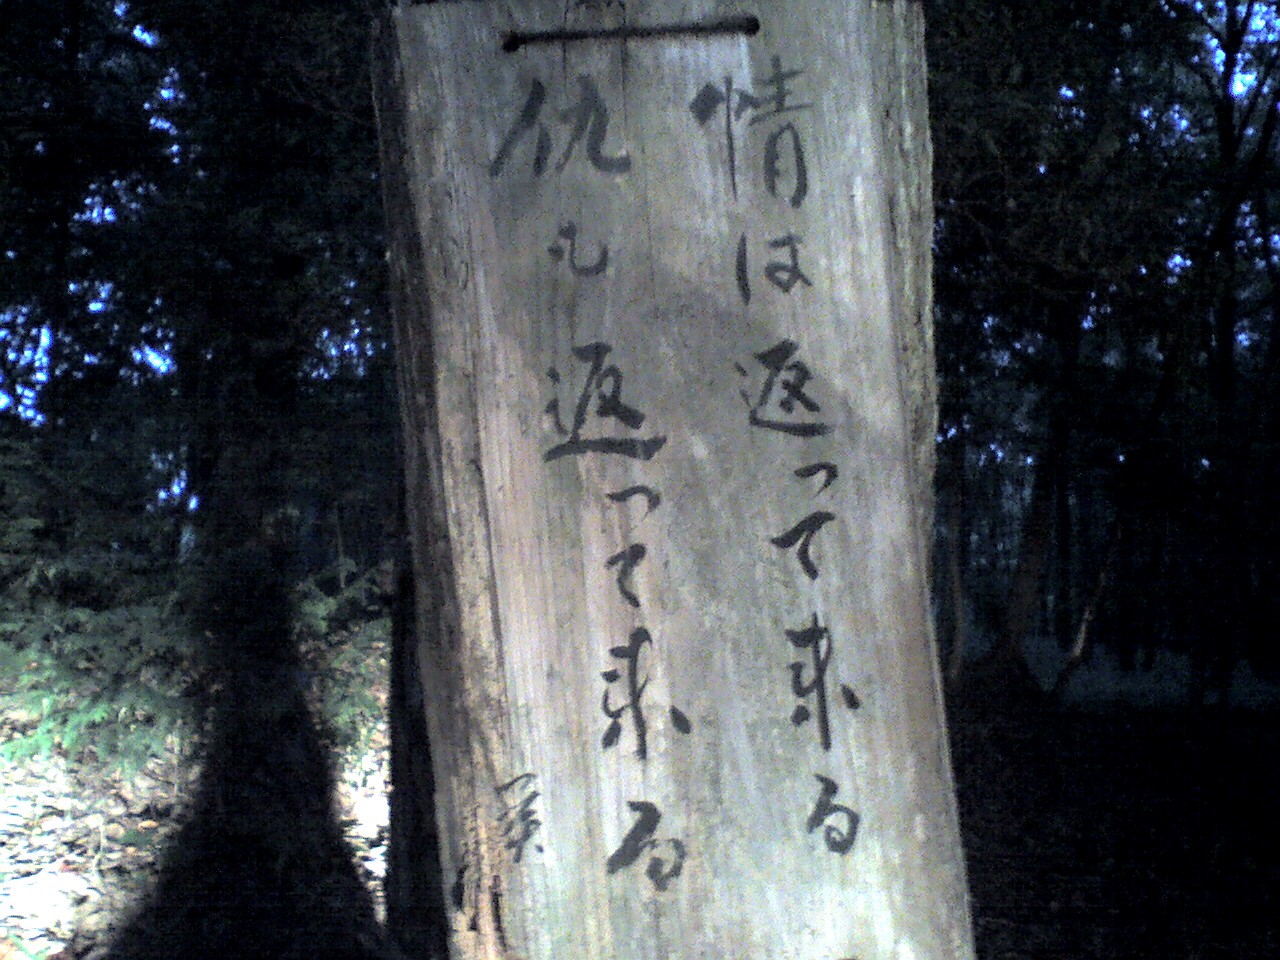 情は返って来る
仇も返って来る